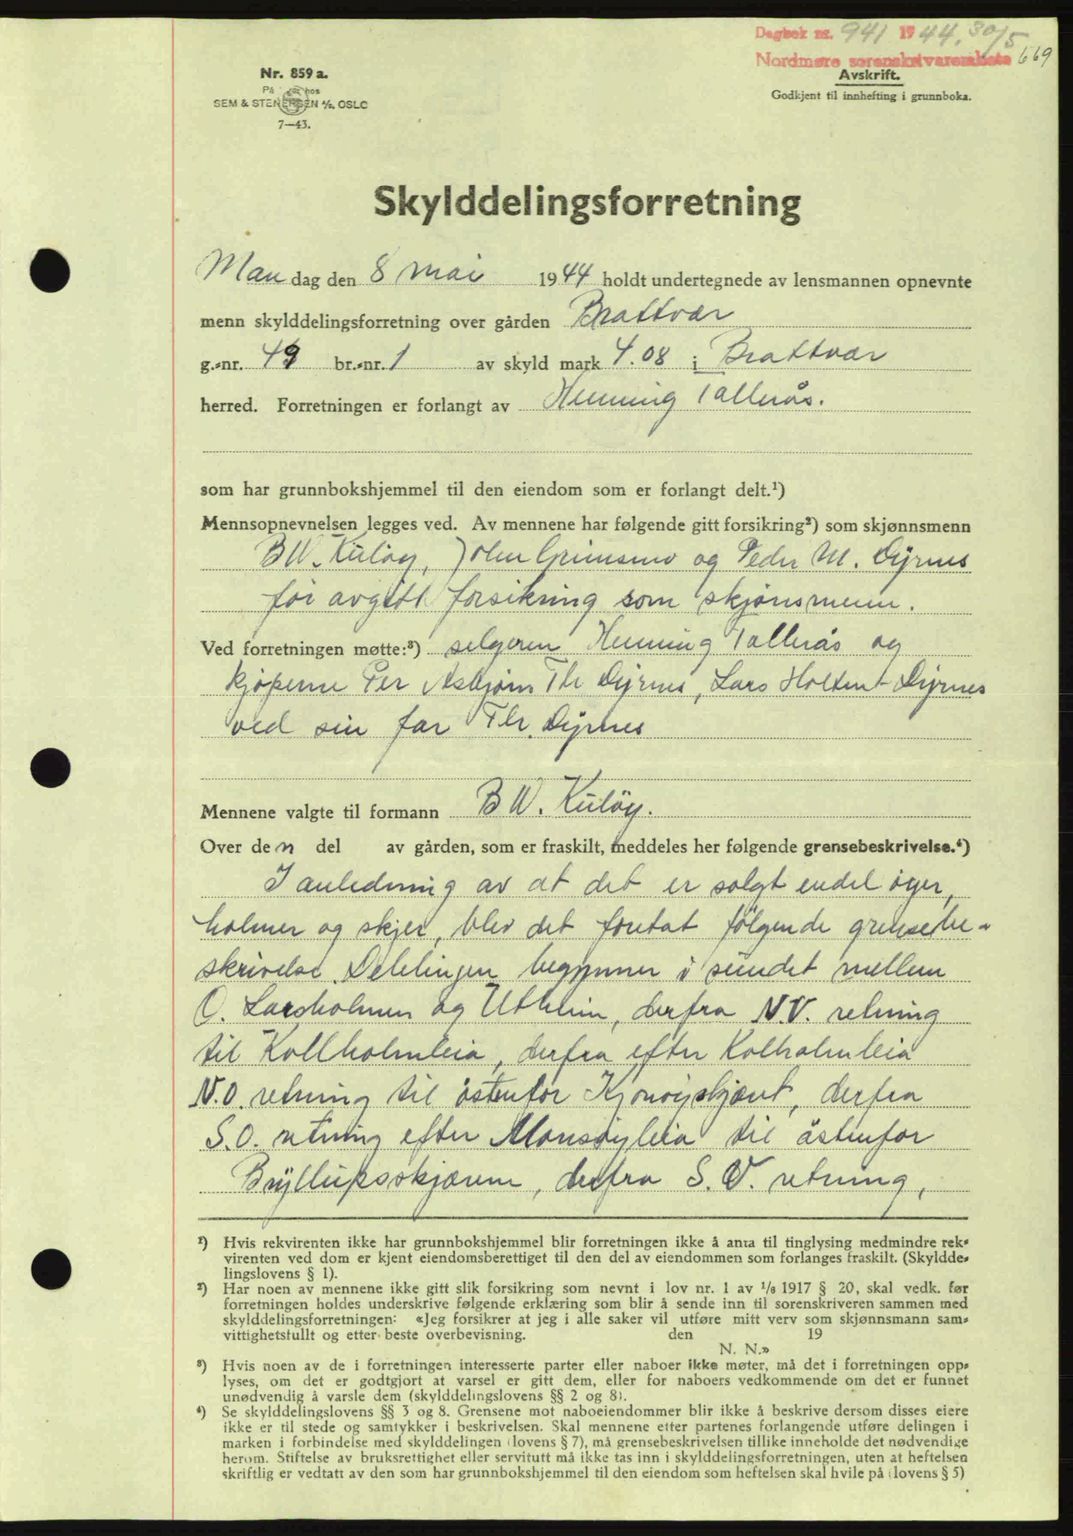 Dagbok nr. 941 1944. 30/5
Nordmøre sorenskrivarembete 669
Nr. 859 a.
På hos
SEM & STENERSEN A/S. OSLO
7—43.
Avskrift.
Godkjent til innhefting i grunnboka.
Skylddelingsforretning
Man dag den 8 mai 1944 holdt undertegnede av lensmannen opnevnte
menn skylddelingsforretning over gården Brattvær
g.-nr. 49 br.-nr. 1 av skyld mark 4.08 i Brattvær
herred. Forretningen er forlangt av Henning Tallerås.
som har grunnbokshjemmel til den eiendom som er forlangt delt.¹)
Mennsopnevnelsen legges ved. Av mennene har følgende gitt forsikring²) som skjønnsmenn
B W. Kuløy, John Grimsmo og Peder M. Dyrnes
før avgitt forsikring som skjønsmenn.
Ved forretningen møtte:³) selgeren Henning Tallerås og
kjøperne Per Asbjørn Th Dyrnes, Lars Holten Dyrnes
ved sin far Th. Dyrnes
Mennene valgte til formann B W. Kuløy.
Over den del av gården, som er fraskilt, meddeles her følgende grensebeskrivelse.⁴)
I anledning av at det er solgt endel øyer,
holmer og skjer, blev det foretat følgende grensebe-
skrivelse. Delelinjen begynner i sundet mellem
O. Larsholmen og Utheim, derfra N.V. retning
til Kollholmleia, derfra efter Kolholmleia
N.O. retning til østenfor Kjonøyskjæret, derfra
S.O. retning efter Monsøyleia til østenfor
Bryllupsskjærene, derfra S.V. retning,
¹) Hvis rekvirenten ikke har grunnbokshjemmel blir forretningen ikke å anta til tinglysing medmindre rek-
virenten ved dom er kjent eiendomsberettiget til den del av eiendommen som forlanges fraskilt. (Skyldde-
lingslovens § 1).
²) Har noen av mennene ikke gitt slik forsikring som nevnt i lov nr. 1 av 1/8 1917 § 20, skal vedk. før
forretningen holdes underskrive følgende erklæring som blir å sende inn til sorenskriveren sammen med
skylddelingsforretningen: «Jeg forsikrer at jeg i alle saker vil utføre mitt verv som skjønnsmann sam-
vittighetsfullt og etter beste overbevisning. den 19
N. N.»
³) Hvis noen av de i forretningen interesserte parter eller naboer ikke møter, må det i forretningen opp-
lyses, om det er godtgjort at varsel er gitt dem, eller for naboers vedkommende om det er funnet
unødvendig å varsle dem (skylddelingslovens §§ 2 og 8).
⁴) Se skylddelingslovens §§ 3 og 8. Grensene mot naboeiendommer blir ikke å beskrive dersom disses eiere
ikke er til stede og samtykker i beskrivelsen. Skal mennene etter partenes forlangende utføre delingen i
marken i forbindelse med skylddelingen (lovens § 7), må grensebeskrivelsen tillike inneholde det nødvendige
herom. Stiftelse av bruksrettighet eller servitutt må ikke tas inn i skylddelingsforretningen, uten at heftelsen
skriftlig er vedtatt av den som har grunnbokshjemmel til den eiendom som heftelsen skal hvile på (lovens § 5)